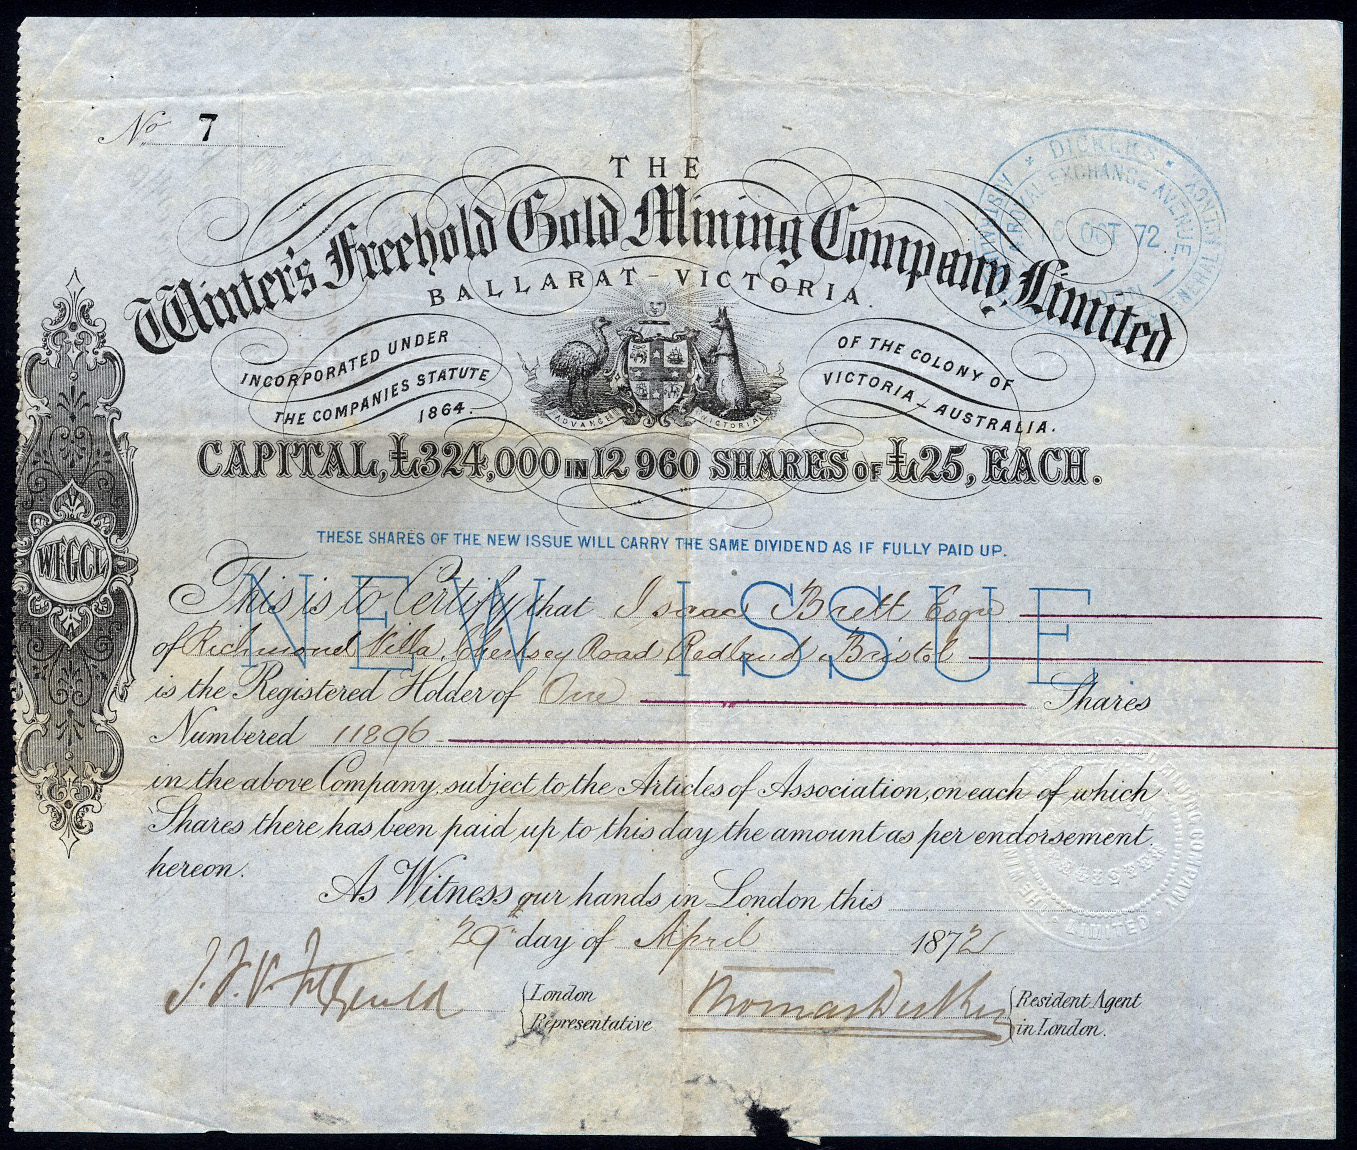 No 7
THE
Winter's Freehold Gold Mining Company, Limited
BALLARAT - VICTORIA.
INCORPORATED UNDER
THE COMPANIES STATUTE
1864.
OF THE COLONY OF
VICTORIA - AUSTRALIA.
ADVANCE VICTORIA
CAPITAL, £324,000 IN 12 960 SHARES OF £25, EACH.
THESE SHARES OF THE NEW ISSUE WILL CARRY THE SAME DIVIDEND AS IF FULLY PAID UP.
NEW ISSUE
This is to Certify that Isaac Brett Esqre
of Richmond Villa, Chertsey Road Redland Bristol
is the Registered Holder of One Shares
Numbered 11896
in the above Company, subject to the Articles of Association, on each of which
Shares there has been paid up to this day the amount as per endorsement
hereon.
As Witness our hands in London this
29th day of April 1872
J. F. V. Fitzgerald
London
Representative
Thomas Dicker
Resident Agent
in London.
WFGCL
DICKER'S
ROYAL EXCHANGE AVENUE
OCT 72
MINING COMPANY
LIMITED